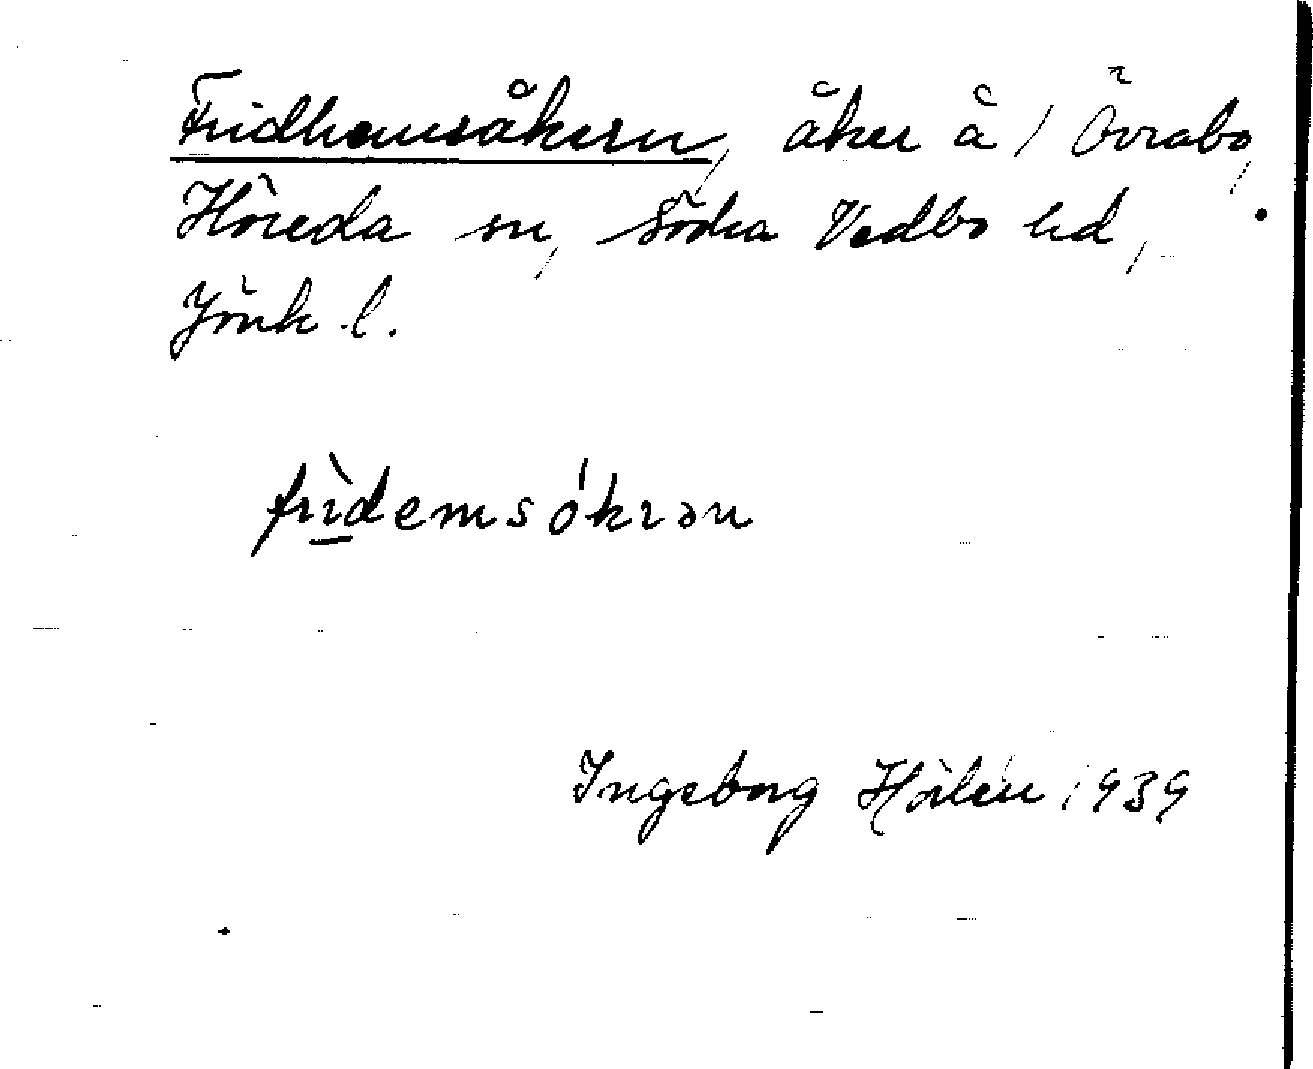 Fridhemsåkern, åker å / Övrabo,
Höreda sn, Södra Vedbo hd,
Jönk. l.
frìdemsókrən
Ingeborg Hörlén 1939